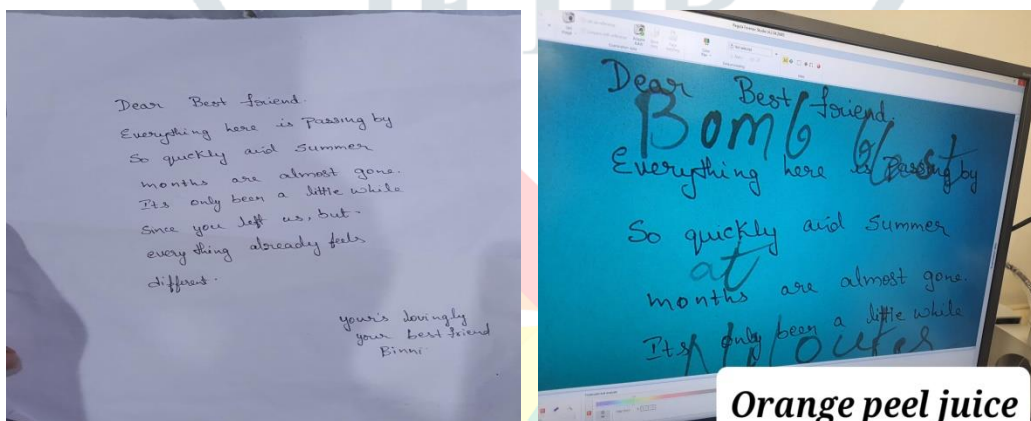 Dear Best friend.
Everything here is Passing by
So quickly and Summer
months are almost gone.
Its only been a little while
Since you left us, but.
every thing already feels
different.
your's lovingly
your best friend
Binni
Dear Best friend.
Bomb blast
Everything here is Passing by
So quickly and Summer
at
months are almost gone.
Its only been a little while
Orange peel juice